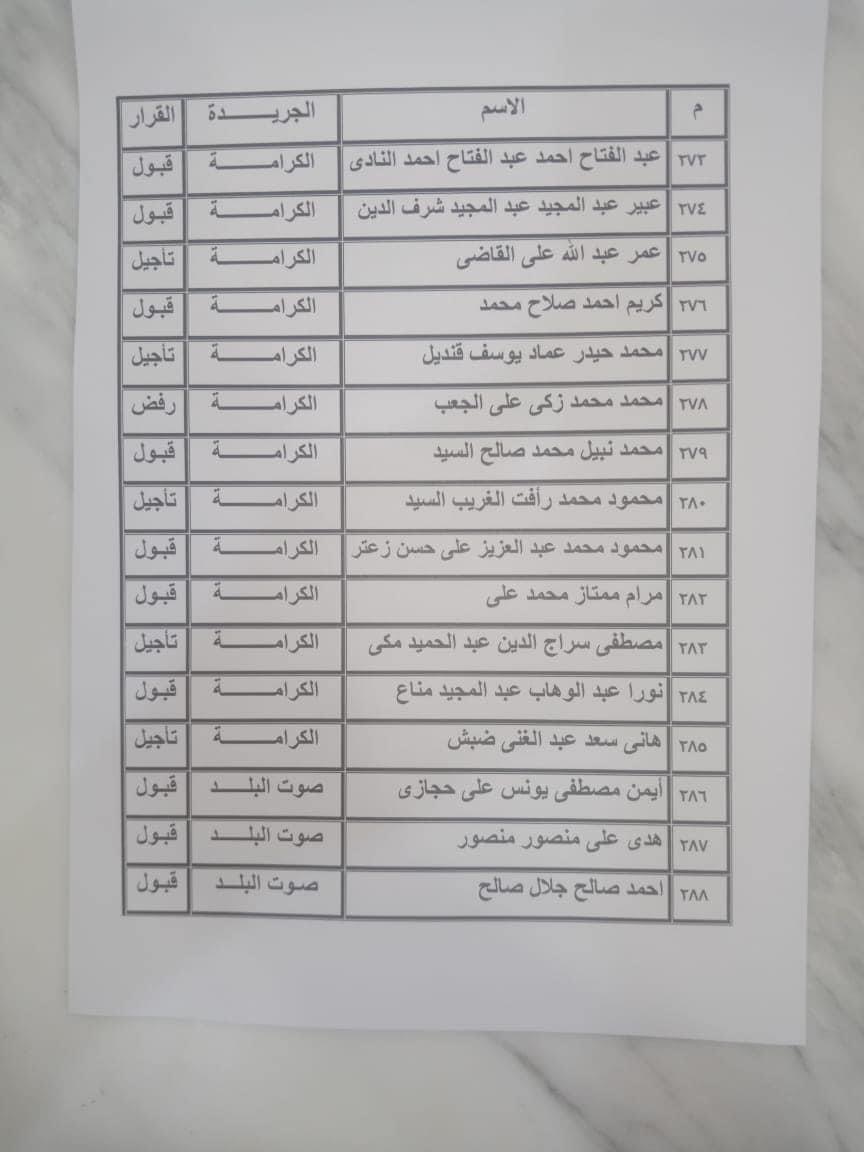 م الاسم الجريـــــدة القرار
٢٧٣ عبد الفتاح احمد عبد الفتاح احمد النادى الكرامـــــة قبول
٢٧٤ عبير عبد المجيد عبد المجيد شرف الدين الكرامـــــة قبول
٢٧٥ عمر عبد الله على القاضى الكرامـــــة تأجيل
٢٧٦ كريم احمد صلاح محمد الكرامـــــة قبول
٢٧٧ محمد حيدر عماد يوسف قنديل الكرامـــــة تأجيل
٢٧٨ محمد محمد زكى على الجعب الكرامـــــة رفض
٢٧٩ محمد نبيل محمد صالح السيد الكرامـــــة قبول
٢٨٠ محمود محمد رأفت الغريب السيد الكرامـــــة تأجيل
٢٨١ محمود محمد عبد العزيز على حسن زعتر الكرامـــــة قبول
٢٨٢ مرام ممتاز محمد على الكرامـــــة قبول
٢٨٣ مصطفى سراج الدين عبد الحميد مكى الكرامـــــة تأجيل
٢٨٤ نورا عبد الوهاب عبد المجيد مناع الكرامـــــة قبول
٢٨٥ هانى سعد عبد الغنى ضبش الكرامـــــة تأجيل
٢٨٦ أيمن مصطفى يونس على حجازى صوت البلـــد قبول
٢٨٧ هدى على منصور منصور صوت البلـــد قبول
٢٨٨ احمد صالح جلال صالح صوت البلـــد قبول